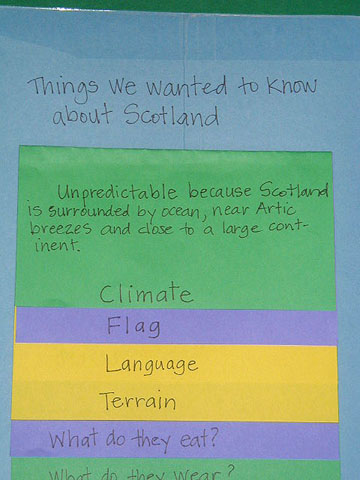 Things We wanted to know
about Scotland
Unpredictable because Scotland
is surrounded by ocean, near Artic
breezes and close to a large cont-
inent.
Climate
Flag
Language
Terrain
What do they eat?
What do they wear?